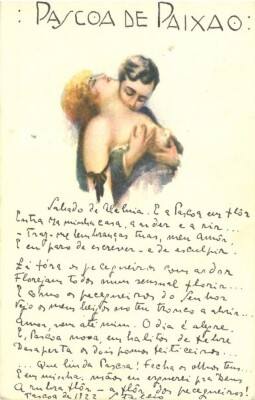 : PASCOA DE PAIXAO :
Sabado de Aleluia. E a Pascoa em flôr
Entra na minha casa, a arder e a rir...
- Traz-me lembranças tuas, meu amôr.
E eu paro de escrever - e de esculpir.
Lá fóra os pecegueiros com ardor
Florejam todos num sensual florir...
E como os pecegueiros do Senhor
Vejo os meus beijos no teu tronco a abrir...
Amor, vem até mim. O dia é alegre.
E, Pascoa nova, em halitos de febre
Desaperta os dois pomos feiticeiros...
... Que linda Pascoa! Fecha os olhos teus
E em minhas mãos eu erguerei pra Deus
A rubra flôr - a flôr dos pecegueiros!
Pascoa de 1922